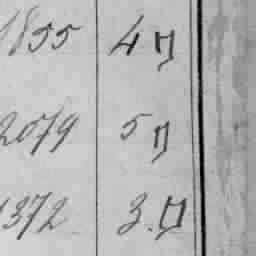 1855 4 д
2079 5 д
1372 3. д